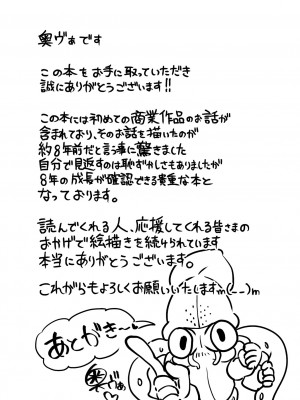 奥ヴぁです
この本をお手に取っていただき
誠にありがとうございます!!
この本には初めての商業作品のお話が
含まれており、そのお話を描いたのが
約8年前だと言う事に驚きました
自分で見返すのは恥ずかしさもありましたが
8年の成長が確認できる貴重な本と
なっております。
読んでくれる人、応援してくれる皆さまの
おかげで絵描きを続けられています
本当にありがとうございます。
これからもよろしくお願いいたしますm(__)m
あとがき〜
奥ヴぁ